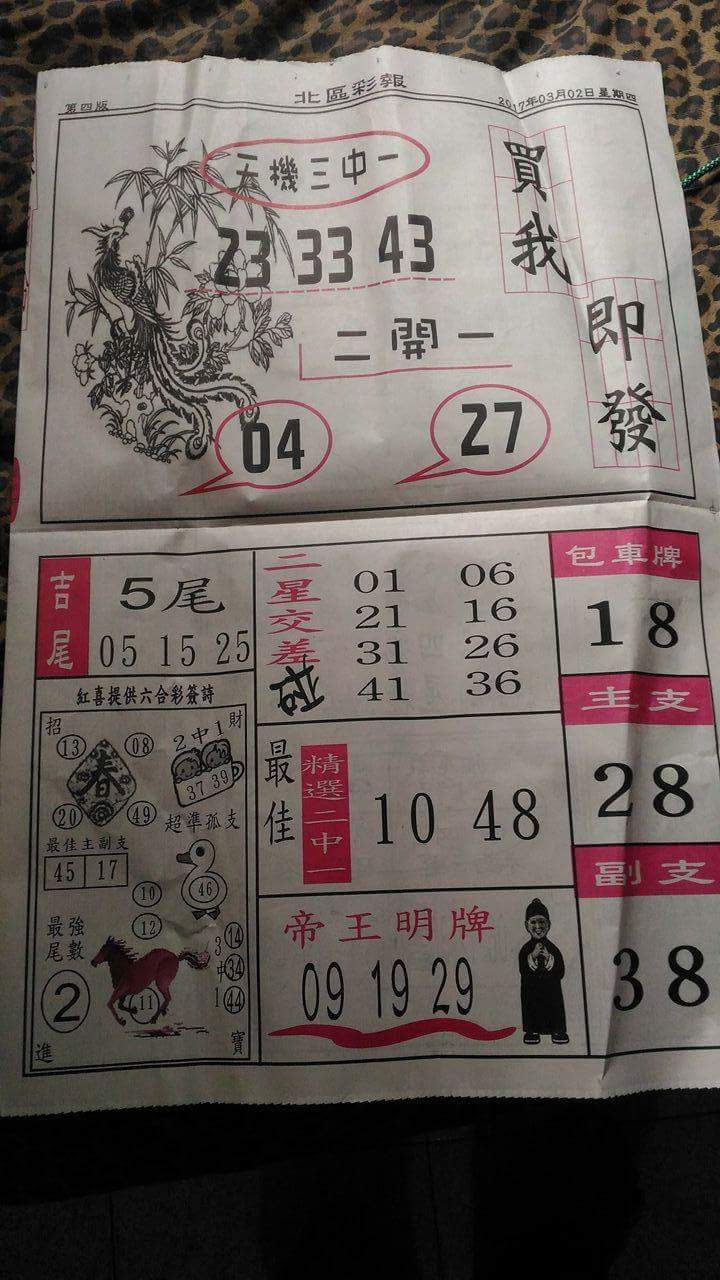 第四版
北區彩報
2017年03月02日星期四
天機三中一
23 33 43
二開一
04
27
買我
即發
吉尾
5尾
05 15 25
二星交差
01 06
21 16
31 26
41 36
包車牌
18
主支
28
副支
38
紅喜提供六合彩簽詩
招
財
13 08
春
20 49
2中1
37 39
超準孤支
46
最佳主副支
45 17
10
12
11
最強尾數
2
3中1
14
34
44
進
寶
最佳
精選二中一
10 48
帝王明牌
09 19 29